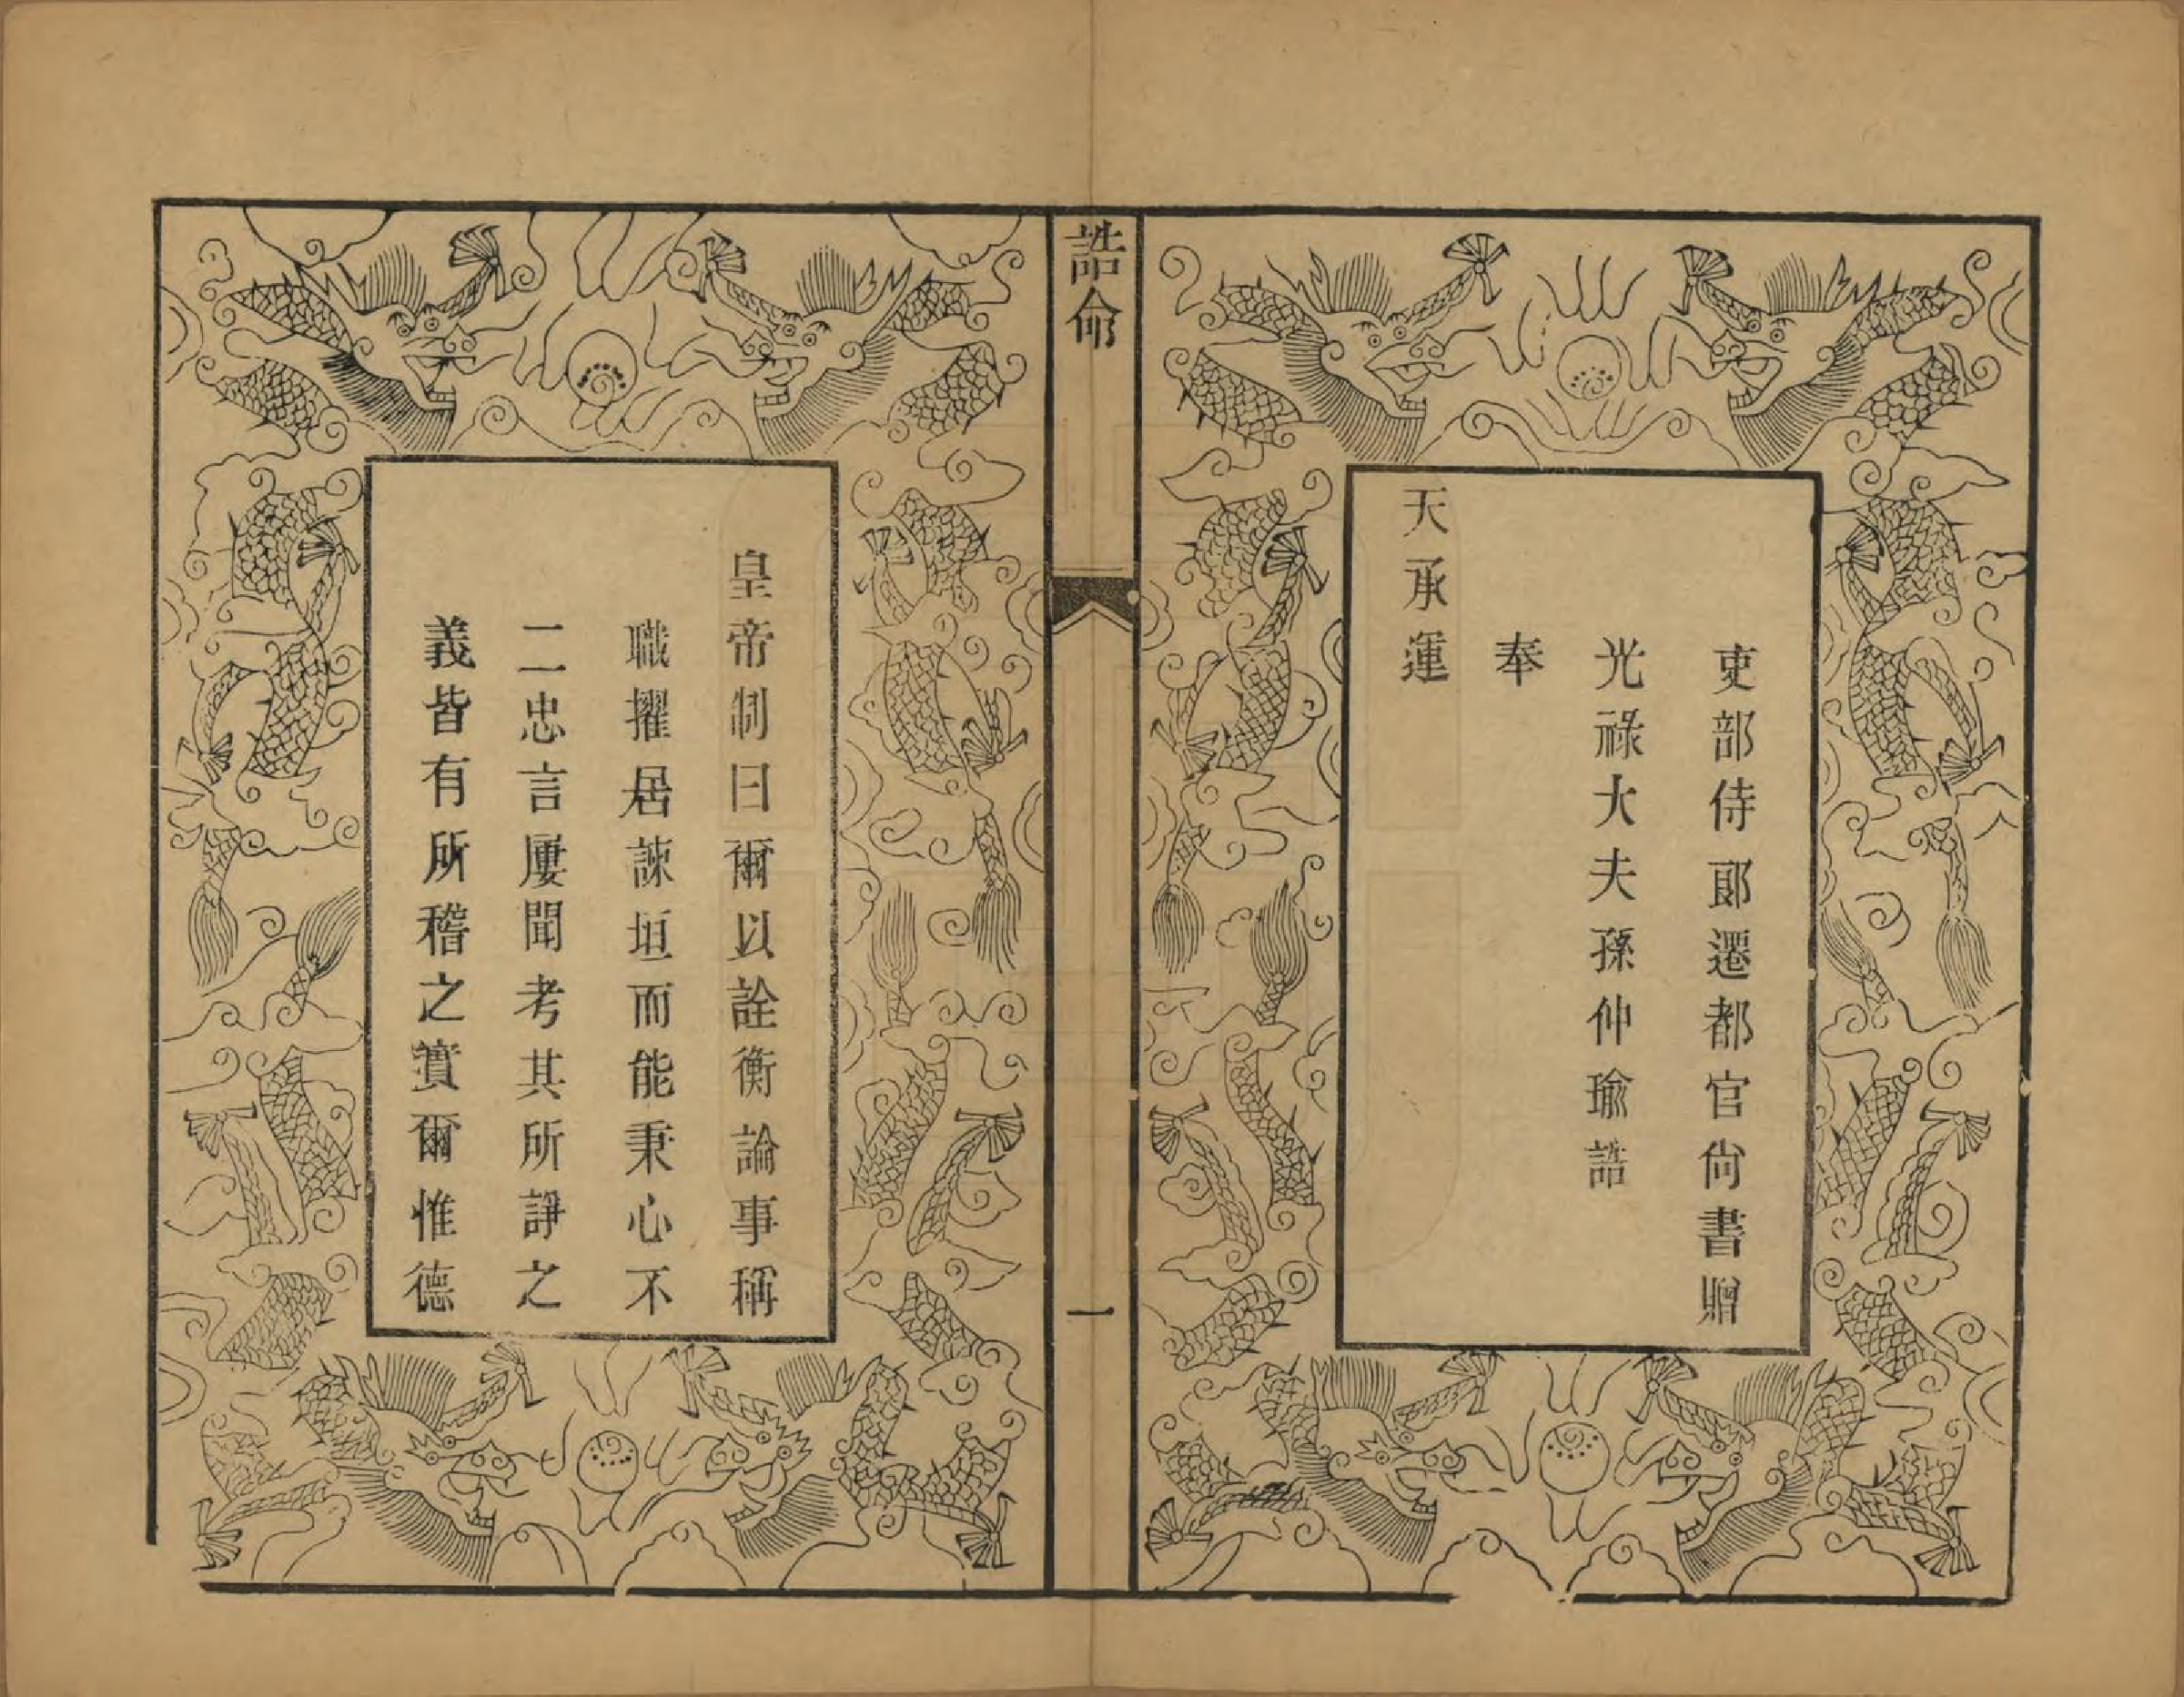 吏部侍郎遷都官尙書贈
光祿大夫孫仲瑜誥
奉
天承運
誥命
一
皇帝制曰爾以詮衡論事稱
職擢居諫垣而能秉心不
二忠言屢聞考其所諍之
義皆有所稽之實爾惟德